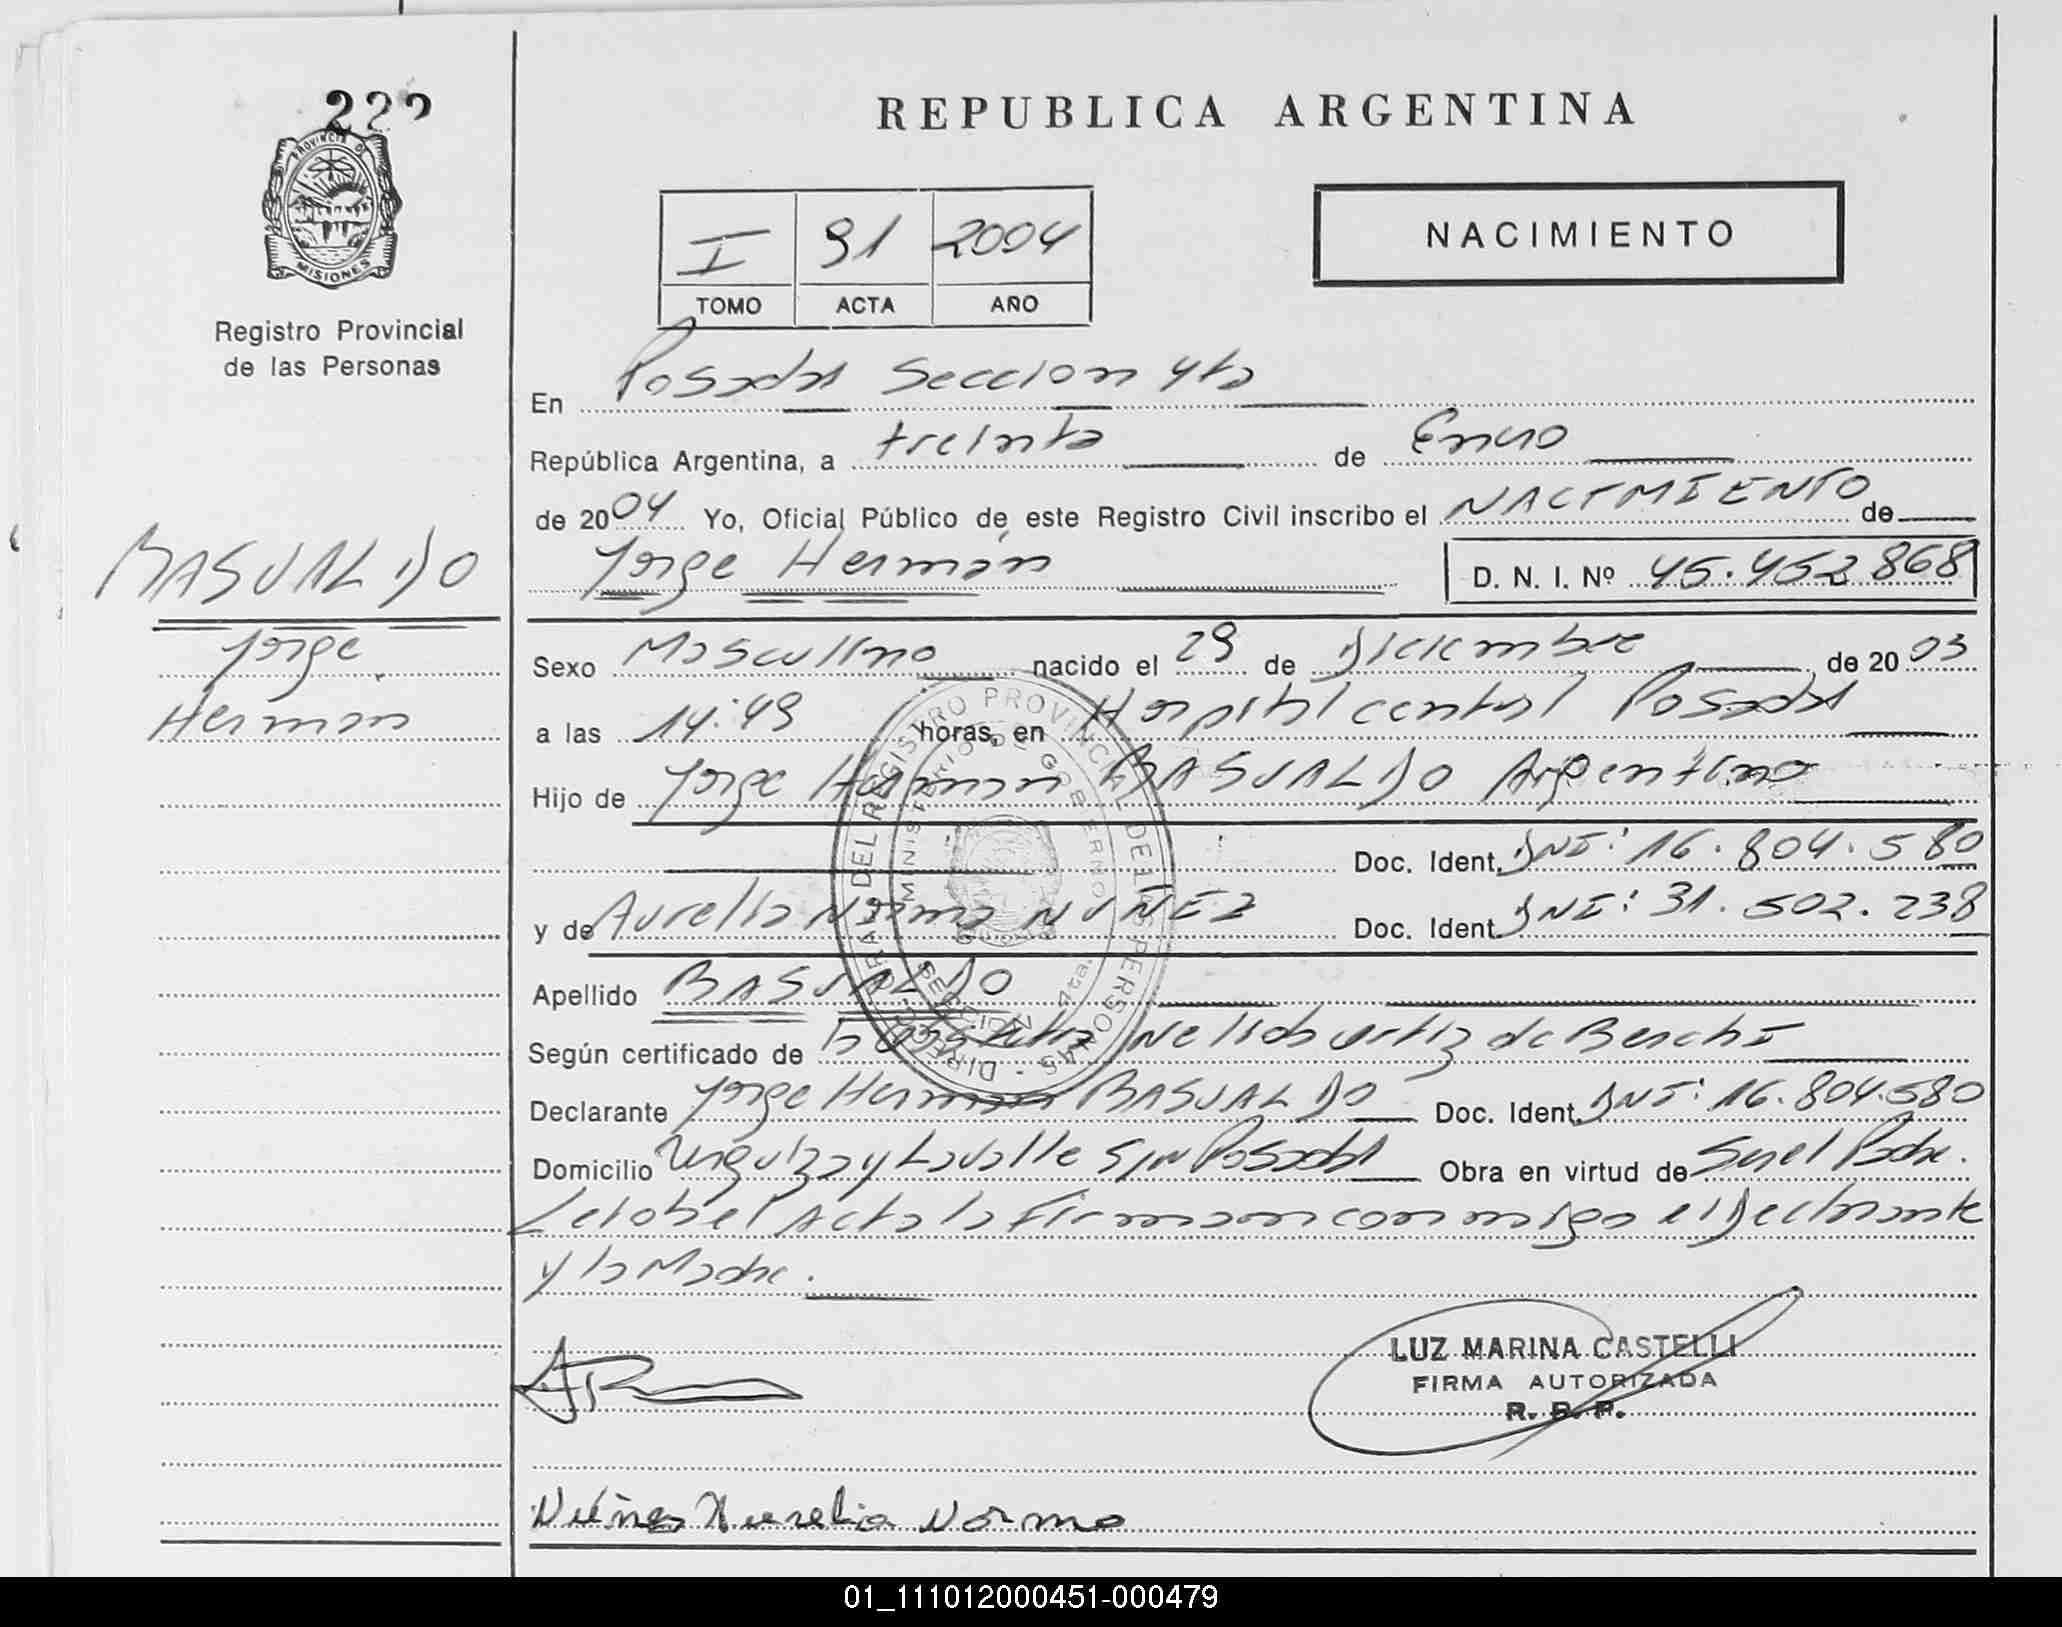 222
PROVINCIA D
MISIONES
Registro Provincial
de las Personas
BASUALDO
Jorge
Hernan
REPUBLICA ARGENTINA
I 91 2004
TOMO ACTA AÑO
NACIMIENTO
En Posadas Seccion 4ta
República Argentina, a treinta de Enero
de 2004 Yo, Oficial Público de este Registro Civil inscribo el NACIMIENTO de
Jorge Hernán D. N. I. Nº 45.452868
Sexo Masculino nacido el 29 de Diciembre de 2003
a las 14:49 horas, en Hospital central Posadas
Hijo de Jorge Hernan BASUALDO Argentino
Doc. Ident. DNI: 16.804.580
y de Aurelia Norma NUÑEZ Doc. Ident. DNI: 31.502.238
Apellido BASUALDO
Según certificado de la Obstetriz Nelida Ortiz de
Declarante Jorge Hernan BASUALDO Doc. Ident. DNI: 16.804.580
Domicilio Urquiza y Lavalle S/N Posadas Obra en virtud de Ser el Padre.
Leida el Acta la Firman conmigo el Declarante
y la Madre.
DIRECC. GRAL. DEL REGISTRO PROVINCIAL DE LAS PERSONAS
MINISTERIO DE GOBIERNO
SECCION 4ta.
LUZ MARINA CASTELLI
FIRMA AUTORIZADA
R. P. P.
Nuñez Aurelia Norma
01_111012000451-000479